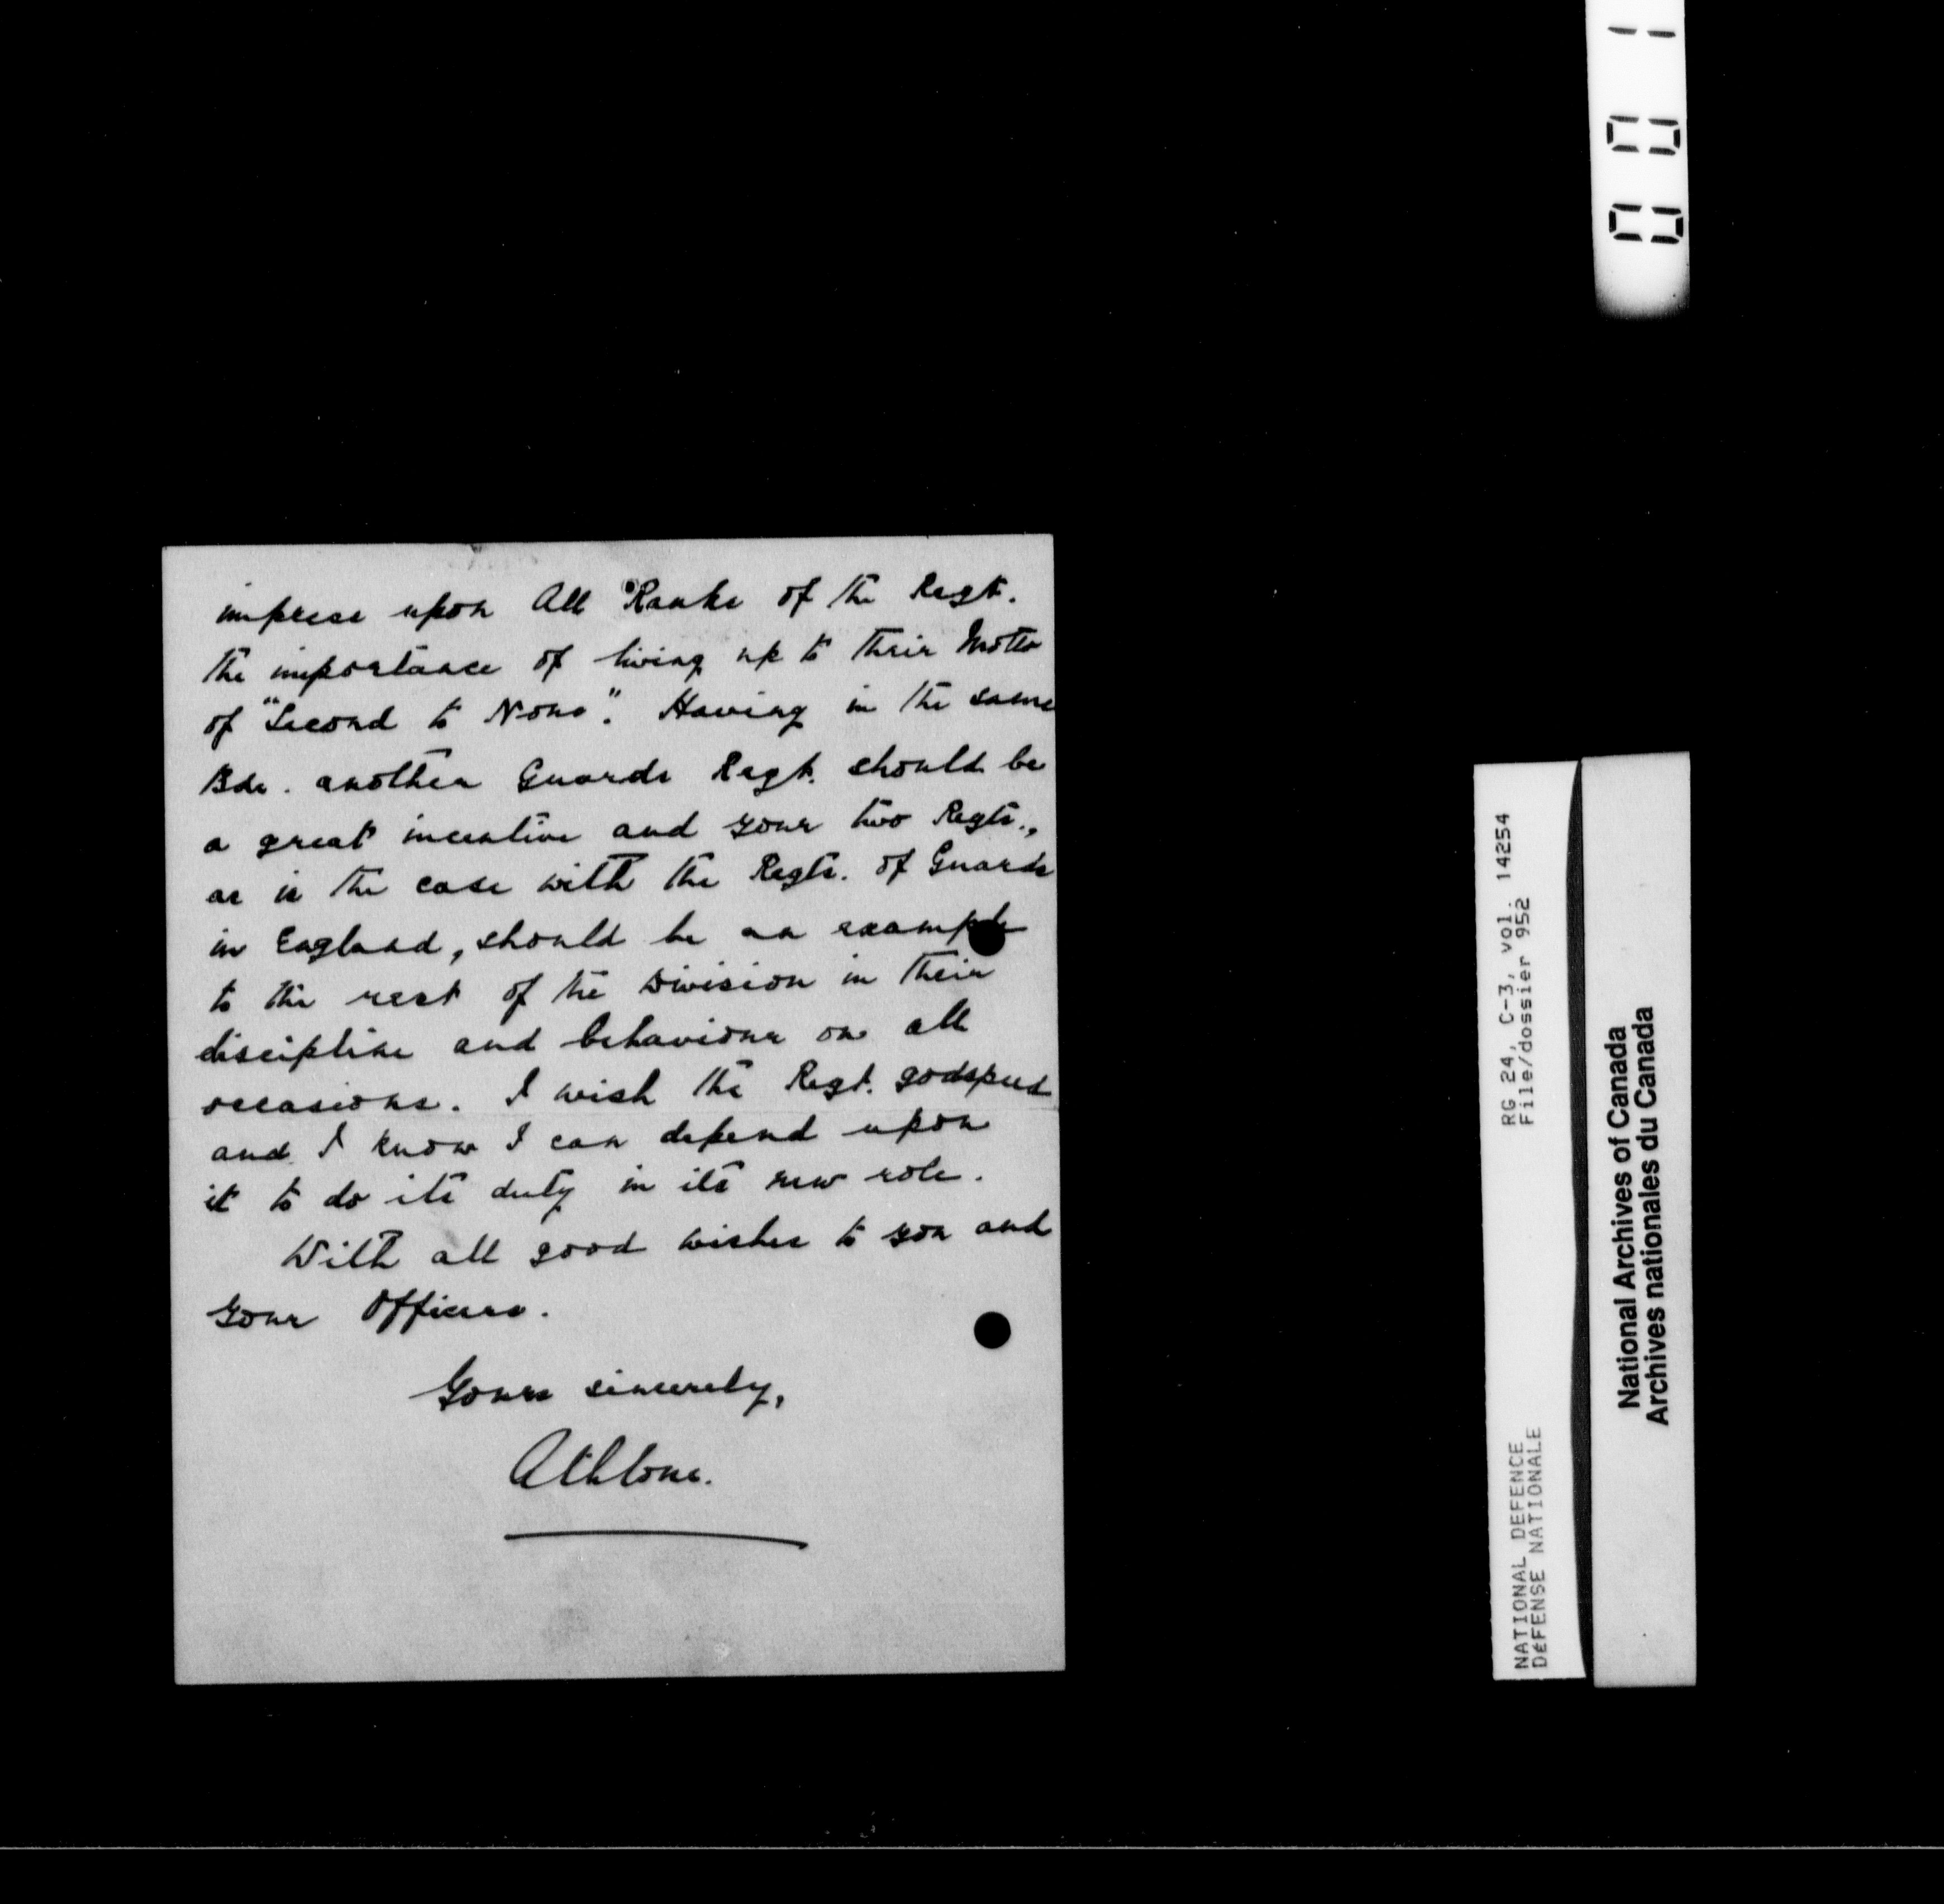 impress upon All Ranks of the Regt.
the importance of living up to their Motto
of "Second to None". Having in the same
Bde. another Guards Regt. should be
a great incentive and your two Regts.,
as is the case with the Regts. of Guards
in England, should be an example
to the rest of the Division in their
discipline and behaviour on all
occasions. I wish the Regt. godspeed
and I know I can depend upon
it to do its duty in its new role.
With all good wishes to you and
your Officers.
Yours sincerely,
Athlone.
001
RG 24, C-3, vol. 14254
File/dossier 952
NATIONAL DEFENCE
DéFENSE NATIONALE
National Archives of Canada
Archives nationales du Canada